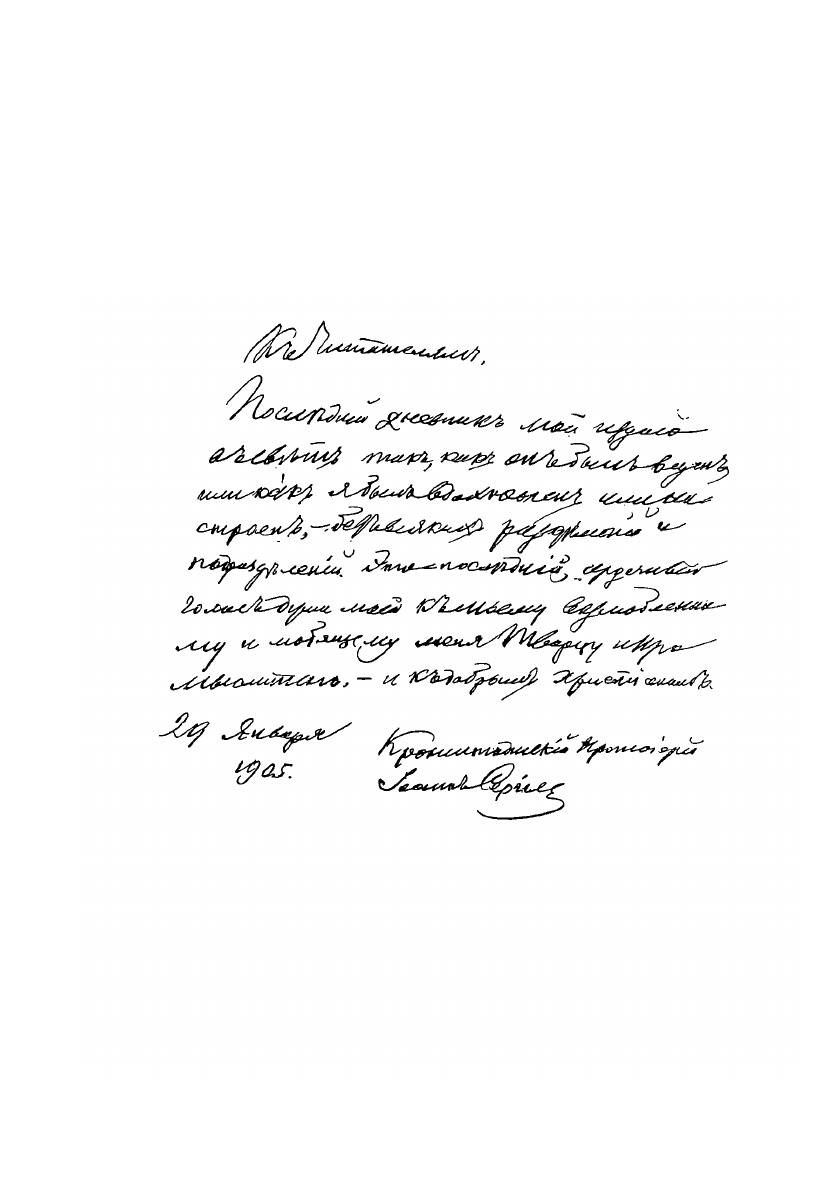 Къ Читателямъ.
Послѣдній дневникъ мой издаю
въ свѣтъ такъ, какъ онъ былъ веденъ
или какъ я былъ вдохновенъ или на-
строенъ, – безъ всякихъ раздѣленій и
подраздѣленій. Это – послѣдній, сердечный
голосъ души моей къ моему Возлюбленно
му и любящему меня Творцу и Про
мыслителю, – и къ добрымъ Христіанамъ.
29 Января
1905.
Кронштадтскій Протоіерей
Іоаннъ Сергіевъ